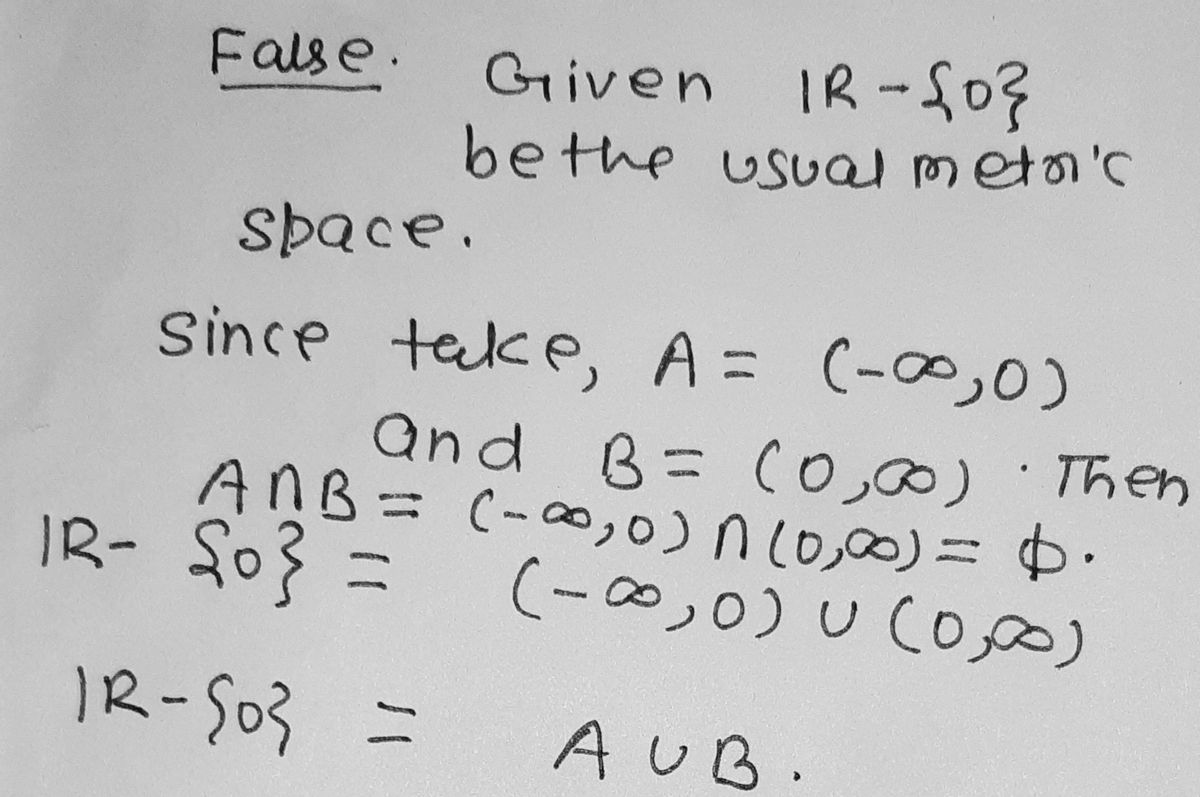 False. Given IR-{0}
be the usual metric
space.
Since take, A = (-∞,0)
and B = (0,∞). Then
A∩B = (-∞,0)∩(0,∞) = ϕ.
IR- {0} = (-∞,0) ∪ (0,∞)
IR-{0} = A∪B.